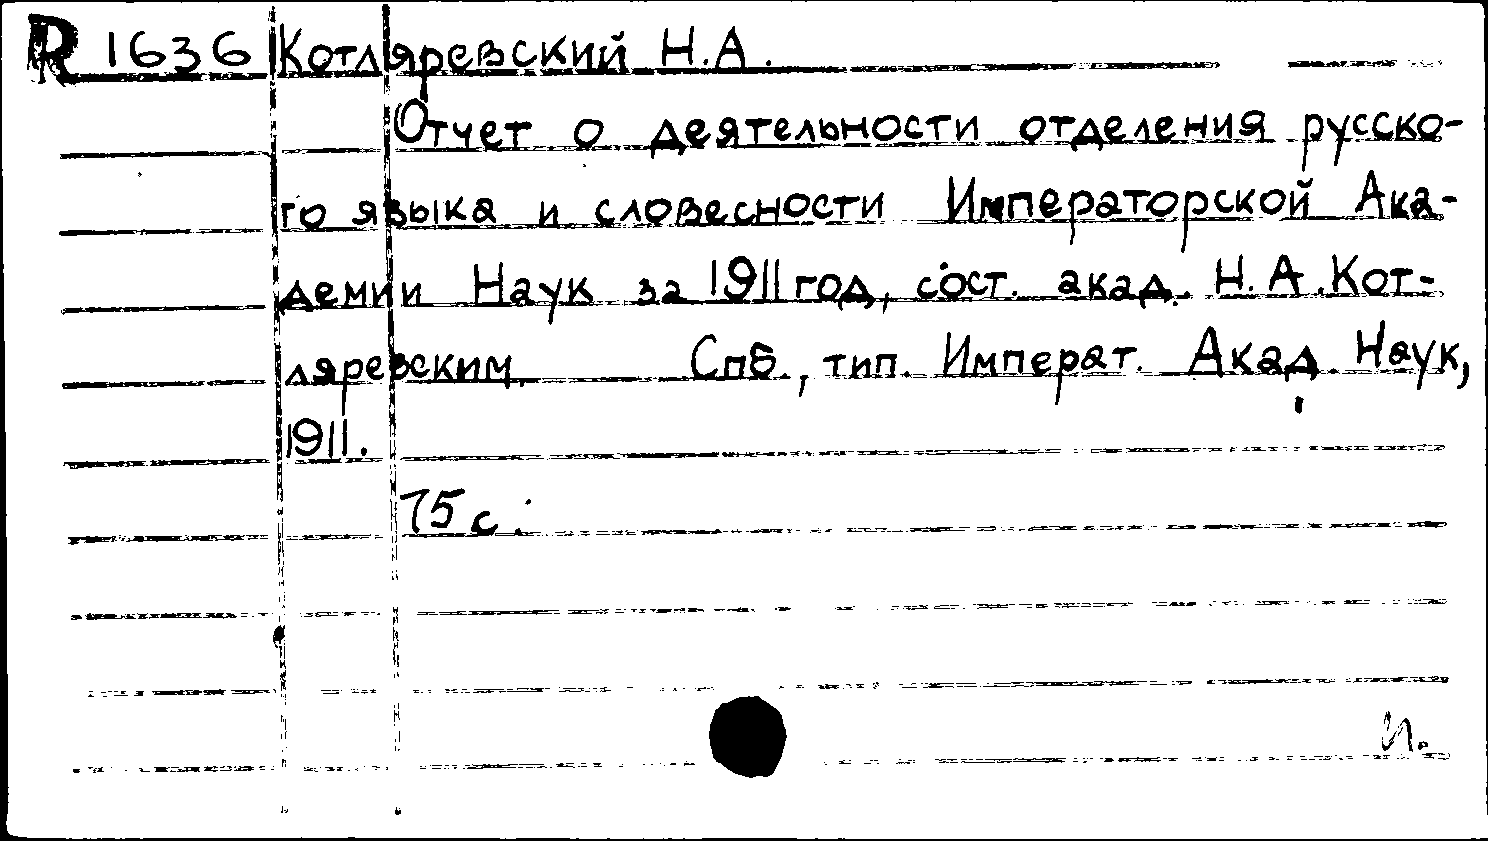 R 1636 Котляревский Н.А.
Отчет о деятельности отделения русско-
го языка и словесности Императорской Ака-
демии Наук за 1911 год, сост. акад. Н.А.Кот-
ляревским. Спб., тип. Императ. Акад. Наук,
1911.
75 с.
и.